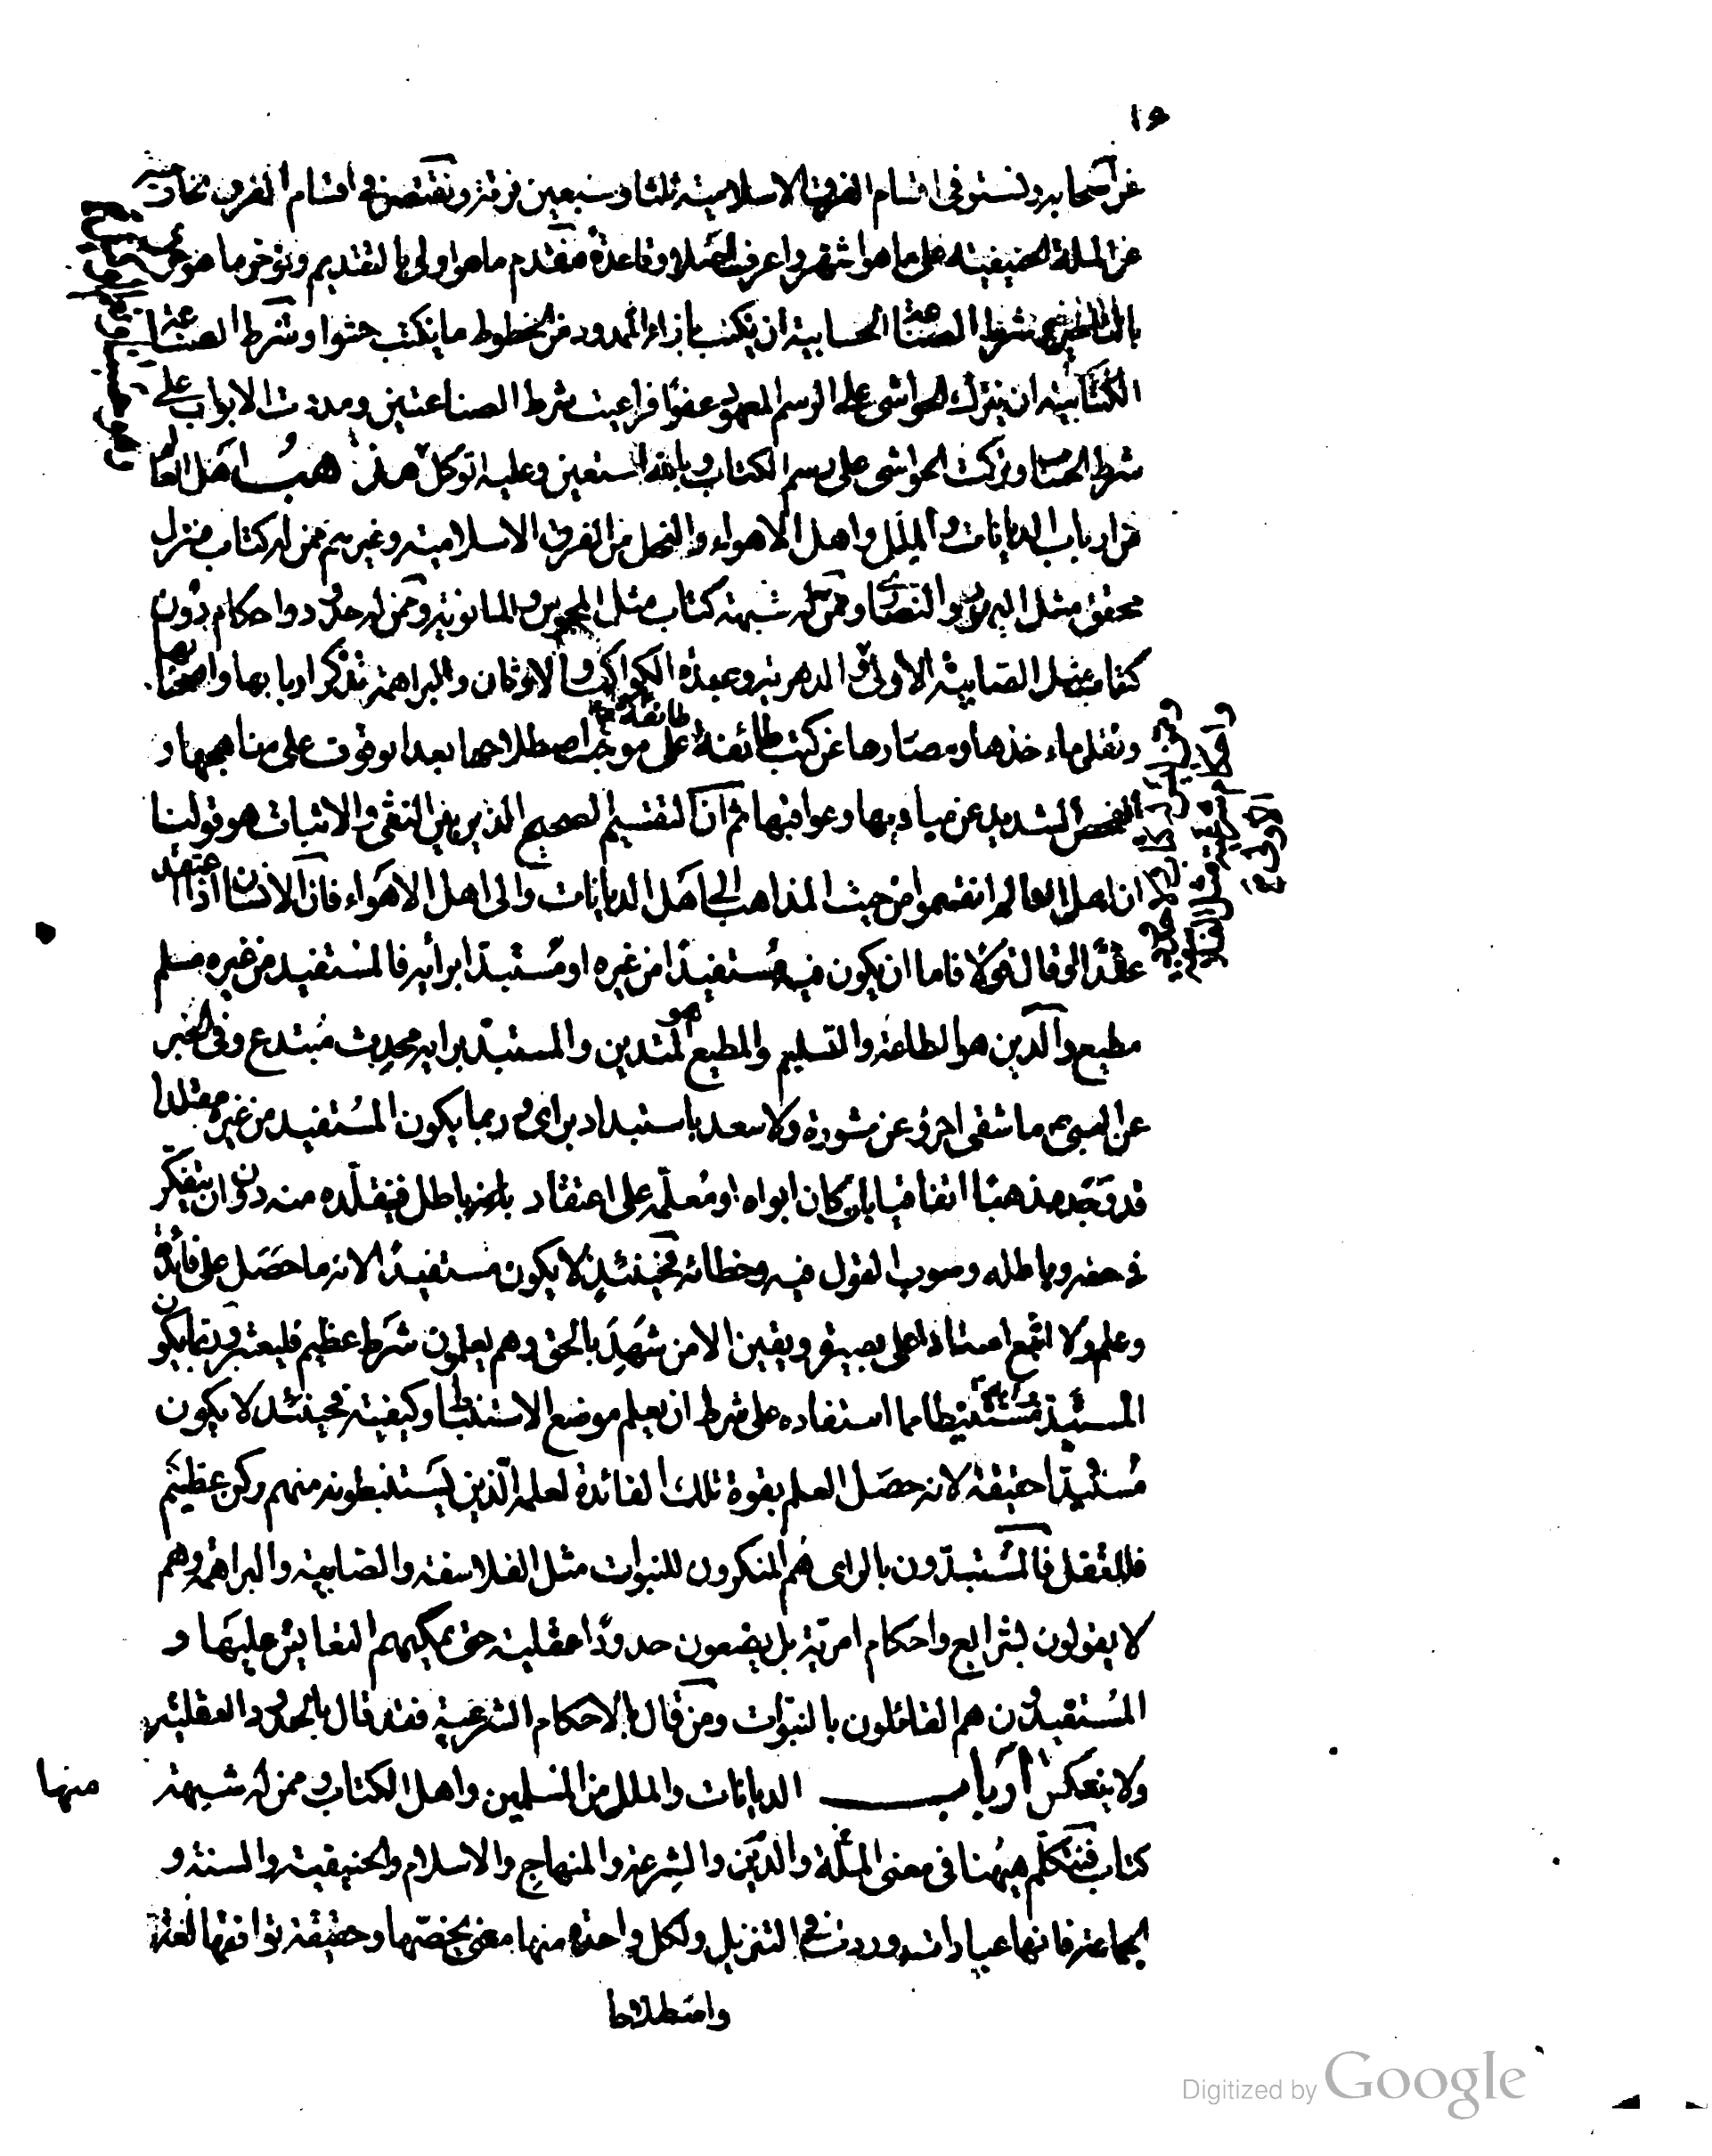 ١٥
عن اصحابه ونستوفى اقسام الفرق الاسلامية ثلثا وسبعين فرقة ونقتصر فى اقسام الفرق الخارجة
عن الملة الحنيفية على ما هو اشهر واعرف اصلا وقاعدة فنقدم ما هو اولى بالتقديم ونؤخر ما هو
بالتاخير وشرط الصناعة الحسابية ان يكتب بازاء الممدود من الخطوط ما يكتب حشوا وشرط الصناعة
الكتابية ان يترك الحواشى على الرسم المعهود عفوا فراعيت شرط الصناعتين ومددت الابواب على
شرط الحساب وتركت الحواشى على رسم الكتاب وبالله استعين وعليه اتوكل مذهب اهل العالم
من ارباب الديانات والملل واهل الاهواء والنحل من الفرق الاسلامية وغيرهم ممن له كتاب منزل
محقق مثل اليهود والنصارى وممن له شبهة كتاب مثل المجوس والمانوية وممن له حدود واحكام دون
كتاب مثل الصابية الاولى والدهرية وعبدة الكواكب والاوثان والبراهمة نذكر اربابها واصحابها
وننقل مآخذها ومصادرها عن كتب طائفة طائفة على موجب اصطلاحها بعد الوقوف على مناهجها و
الفحص الشديد عن مباديها وعواقبها ثم ان التقسيم الصحيح الداير بين النفى والاثبات هو قولنا
ان اهل العالم انقسموا من حيث المذاهب الى اهل الديانات والى اهل الاهواء فان الانسان اذا اعتقد
عقدا او قال قولا فاما ان يكون فيه مستفيدا من غيره او مستبدا برأيه فالمستفيد من غيره مسلم
مطيع والدين هو الطاعة والتسليم والمطيع هو المتدين والمستبد برايه محدث مبتدع وفى الخبر
عن النبى ع م ما شقى امرؤ عن مشورة ولا سعد باستبداد براى وربما يكون المستفيد من غيره مقلدا
قد وجد مذهبا اتفاقيا بان كان ابواه او معلمه على اعتقاد باطل فيتقلده منه دون ان يتفكر
فى حقه وباطله وصوب القول فيه وخطائه فحينئذ لا يكون مستفيدا لانه ما حصل على فائدة
وعلم ولا اتبع استاذا على بصيرة ويقين الا من شهد بالحق وهم يعلمون شرط عظيم فليعتبر وربما يكون
المستبد مستنبطا مما استفاده على شرط ان يعلم موضع الاستنباط وكيفيته فحينئذ لا يكون
مستبدا حقيقة لانه حصل العلم بقوة تلك الفائدة لعلمه الذين يستنبطونه منهم ركن عظيم
فلا تغفل فالمستبدون بالراى هم المنكرون للنبوات مثل الفلاسفة والصابية والبراهمة وهم
لا يقولون بشرايع واحكام امرية بل يضعون حدودا عقلية حتى يمكنهم التعايش عليها و
المستفيدون هم القائلون بالنبوات ومن قال بالاحكام الشرعية فقد قال بالحدود العقلية
ولا ينعكس ارباب الديانات والملل من المسلمين واهل الكتاب وممن له شبهة
منها
كتاب فنتكلم هيهنا فى معنى الملة والدين والشرعة والمنهاج والاسلام والحنيفية والسنة و
الجماعة فانها عبارات وردت فى التنزيل ولكل واحدة منها معنى يخصها وحقيقة توافقها لغة
واصطلاحا
Digitized by Google